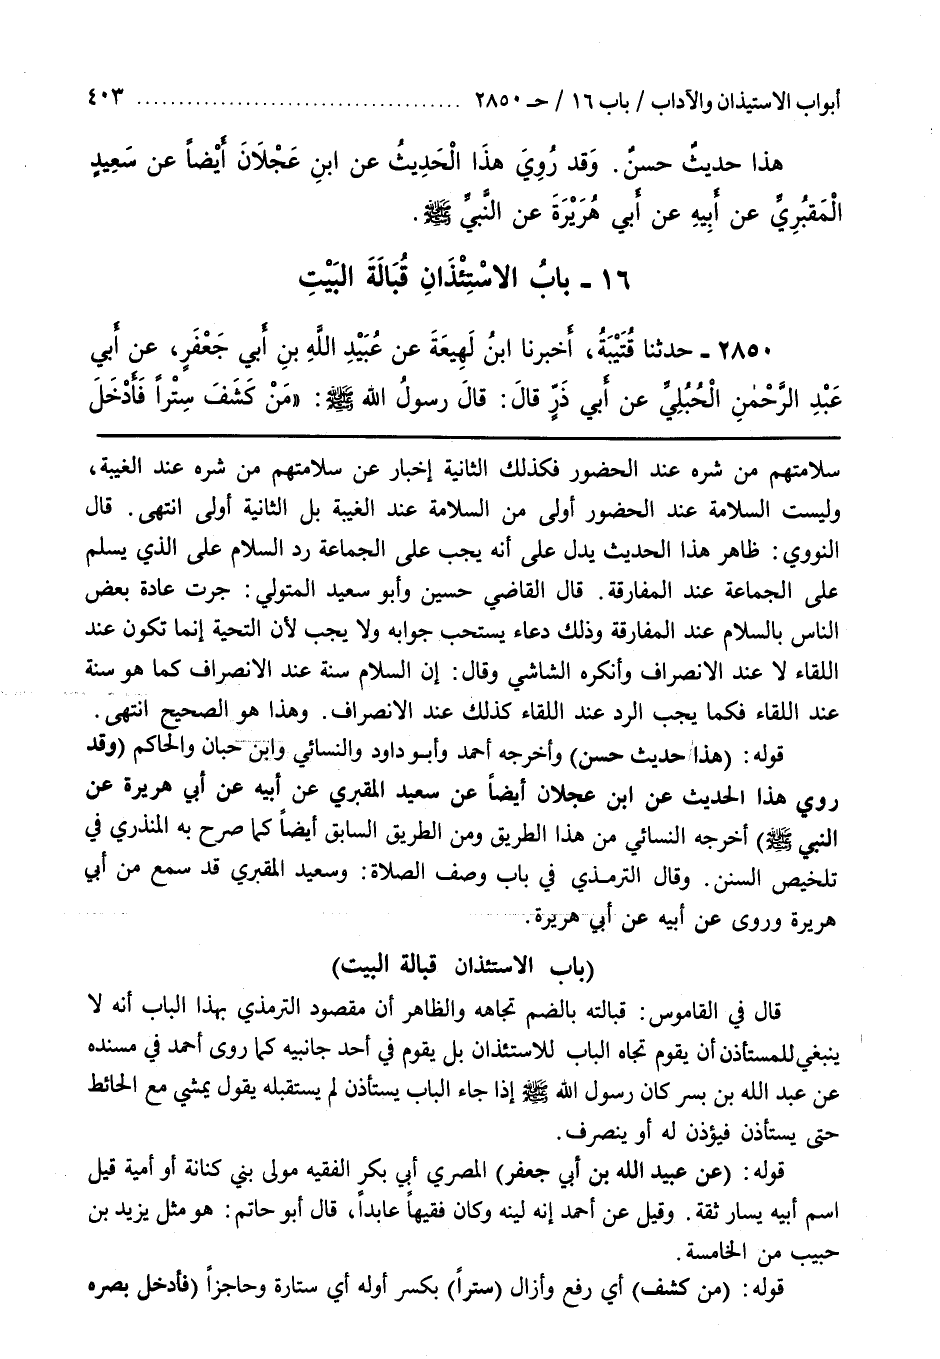 أبواب الاستيذان والآداب / باب ١٦ / حـ ٢٨٥٠ ..................................... ٤٠٣
هذا حديثٌ حسنٌ. وَقد رُوِيَ هذَا الْحَدِيثُ عن ابنِ عَجْلَانَ أَيْضاً عن سَعِيدٍ
الْمَقبُرِيِّ عن أَبِيهِ عن أَبي هُرَيْرَةَ عن النَّبيِّ ﷺ.
١٦ - بابُ الاسْتِئْذَانِ قُبَالَةَ البَيْتِ
٢٨٥٠ - حدثنا قُتَيْبَةُ، أَخبرنا ابنُ لَهِيعَةَ عن عُبَيْدِ اللَّهِ بنِ أَبي جَعْفَرٍ، عن أَبي
عَبْدِ الرَّحْمٰنِ الْحُبُلِيِّ عن أَبي ذَرٍّ قالَ: قالَ رسولُ الله ﷺ: «مَنْ كَشَفَ سِتْراً فَأَدْخَلَ
سلامتهم من شره عند الحضور فكذلك الثانية إخبار عن سلامتهم من شره عند الغيبة،
وليست السلامة عند الحضور أولى من السلامة عند الغيبة بل الثانية أولى انتهى. قال
النووي: ظاهر هذا الحديث يدل على أنه يجب على الجماعة رد السلام على الذي يسلم
على الجماعة عند المفارقة. قال القاضي حسين وأبو سعيد المتولي: جرت عادة بعض
الناس بالسلام عند المفارقة وذلك دعاء يستحب جوابه ولا يجب لأن التحية إنما تكون عند
اللقاء لا عند الانصراف وأنكره الشاشي وقال: إن السلام سنة عند الانصراف كما هو سنة
عند اللقاء فكما يجب الرد عند اللقاء كذلك عند الانصراف. وهذا هو الصحيح انتهى.
قوله: (هذا حديث حسن) وأخرجه أحمد وأبو داود والنسائي وابن حبان والحاكم (وقد
روي هذا الحديث عن ابن عجلان أيضاً عن سعيد المقبري عن أبيه عن أبي هريرة عن
النبي ﷺ) أخرجه النسائي من هذا الطريق ومن الطريق السابق أيضاً كما صرح به المنذري في
تلخيص السنن. وقال الترمذي في باب وصف الصلاة: وسعيد المقبري قد سمع من أبي
هريرة وروى عن أبيه عن أبي هريرة.
(باب الاستئذان قبالة البيت)
قال في القاموس: قبالته بالضم تجاهه والظاهر أن مقصود الترمذي بهذا الباب أنه لا
ينبغي للمستأذن أن يقوم تجاه الباب للاستئذان بل يقوم في أحد جانبيه كما روى أحمد في مسنده
عن عبد الله بن بسر كان رسول الله ﷺ إذا جاء الباب يستأذن لم يستقبله يقول يمشي مع الحائط
حتى يستأذن فيؤذن له أو ينصرف.
قوله: (عن عبيد الله بن أبي جعفر) المصري أبي بكر الفقيه مولى بني كنانة أو أمية قيل
اسم أبيه يسار ثقة. وقيل عن أحمد إنه لينه وكان فقيهاً عابداً، قال أبو حاتم: هو مثل يزيد بن
حبيب من الخامسة.
قوله: (من كشف) أي رفع وأزال (ستراً) بكسر أوله أي ستارة وحاجزاً (فأدخل بصره